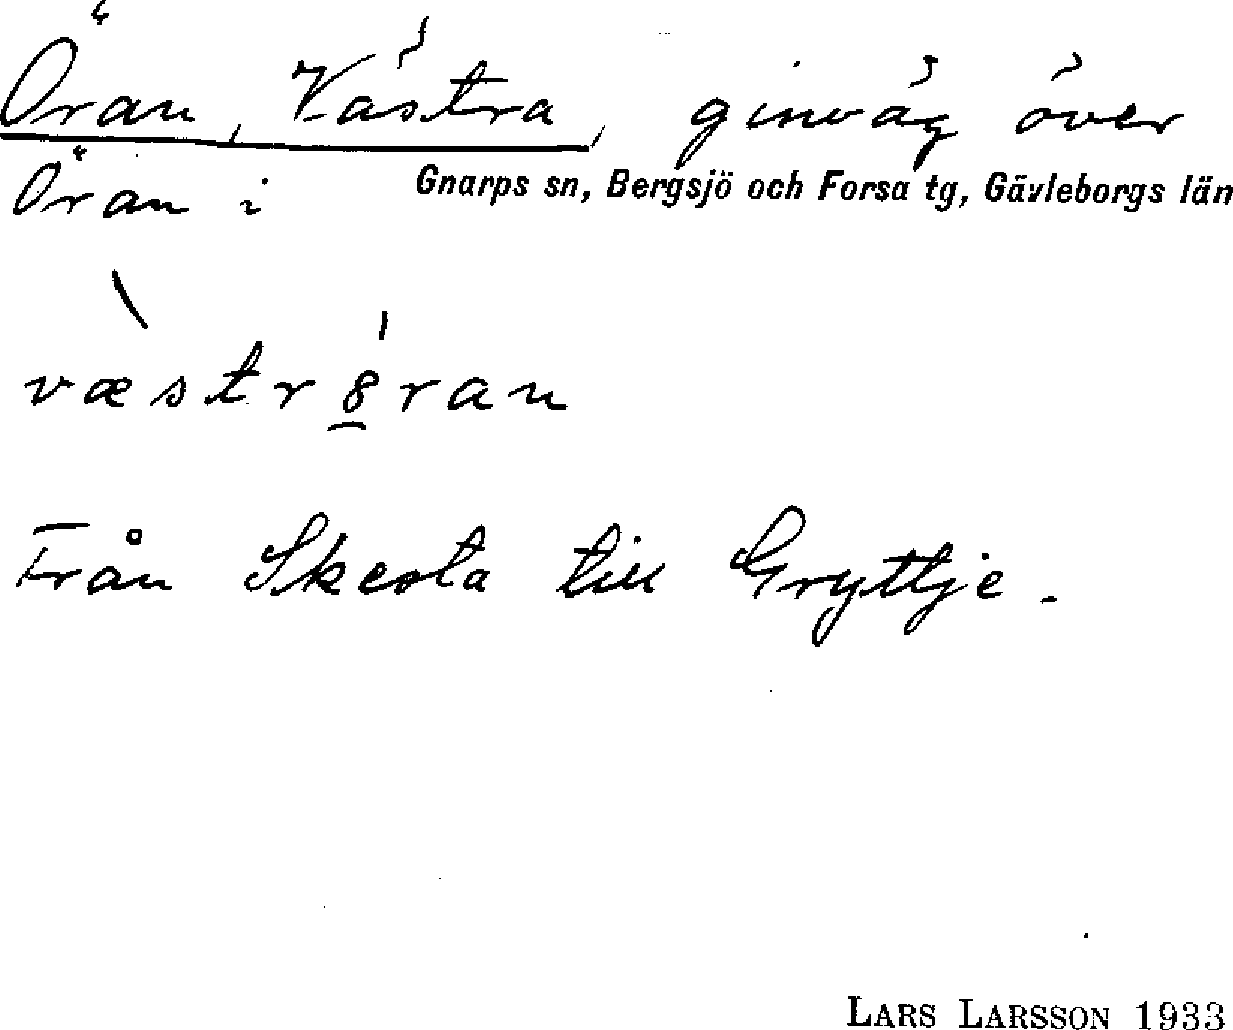 Öran, Västra, ginväg över
Öran i Gnarps sn, Bergsjö och Forsa tg, Gävleborgs län
væstrȣran
Från Skesta till Gryttje.
LARS LARSSON 1933